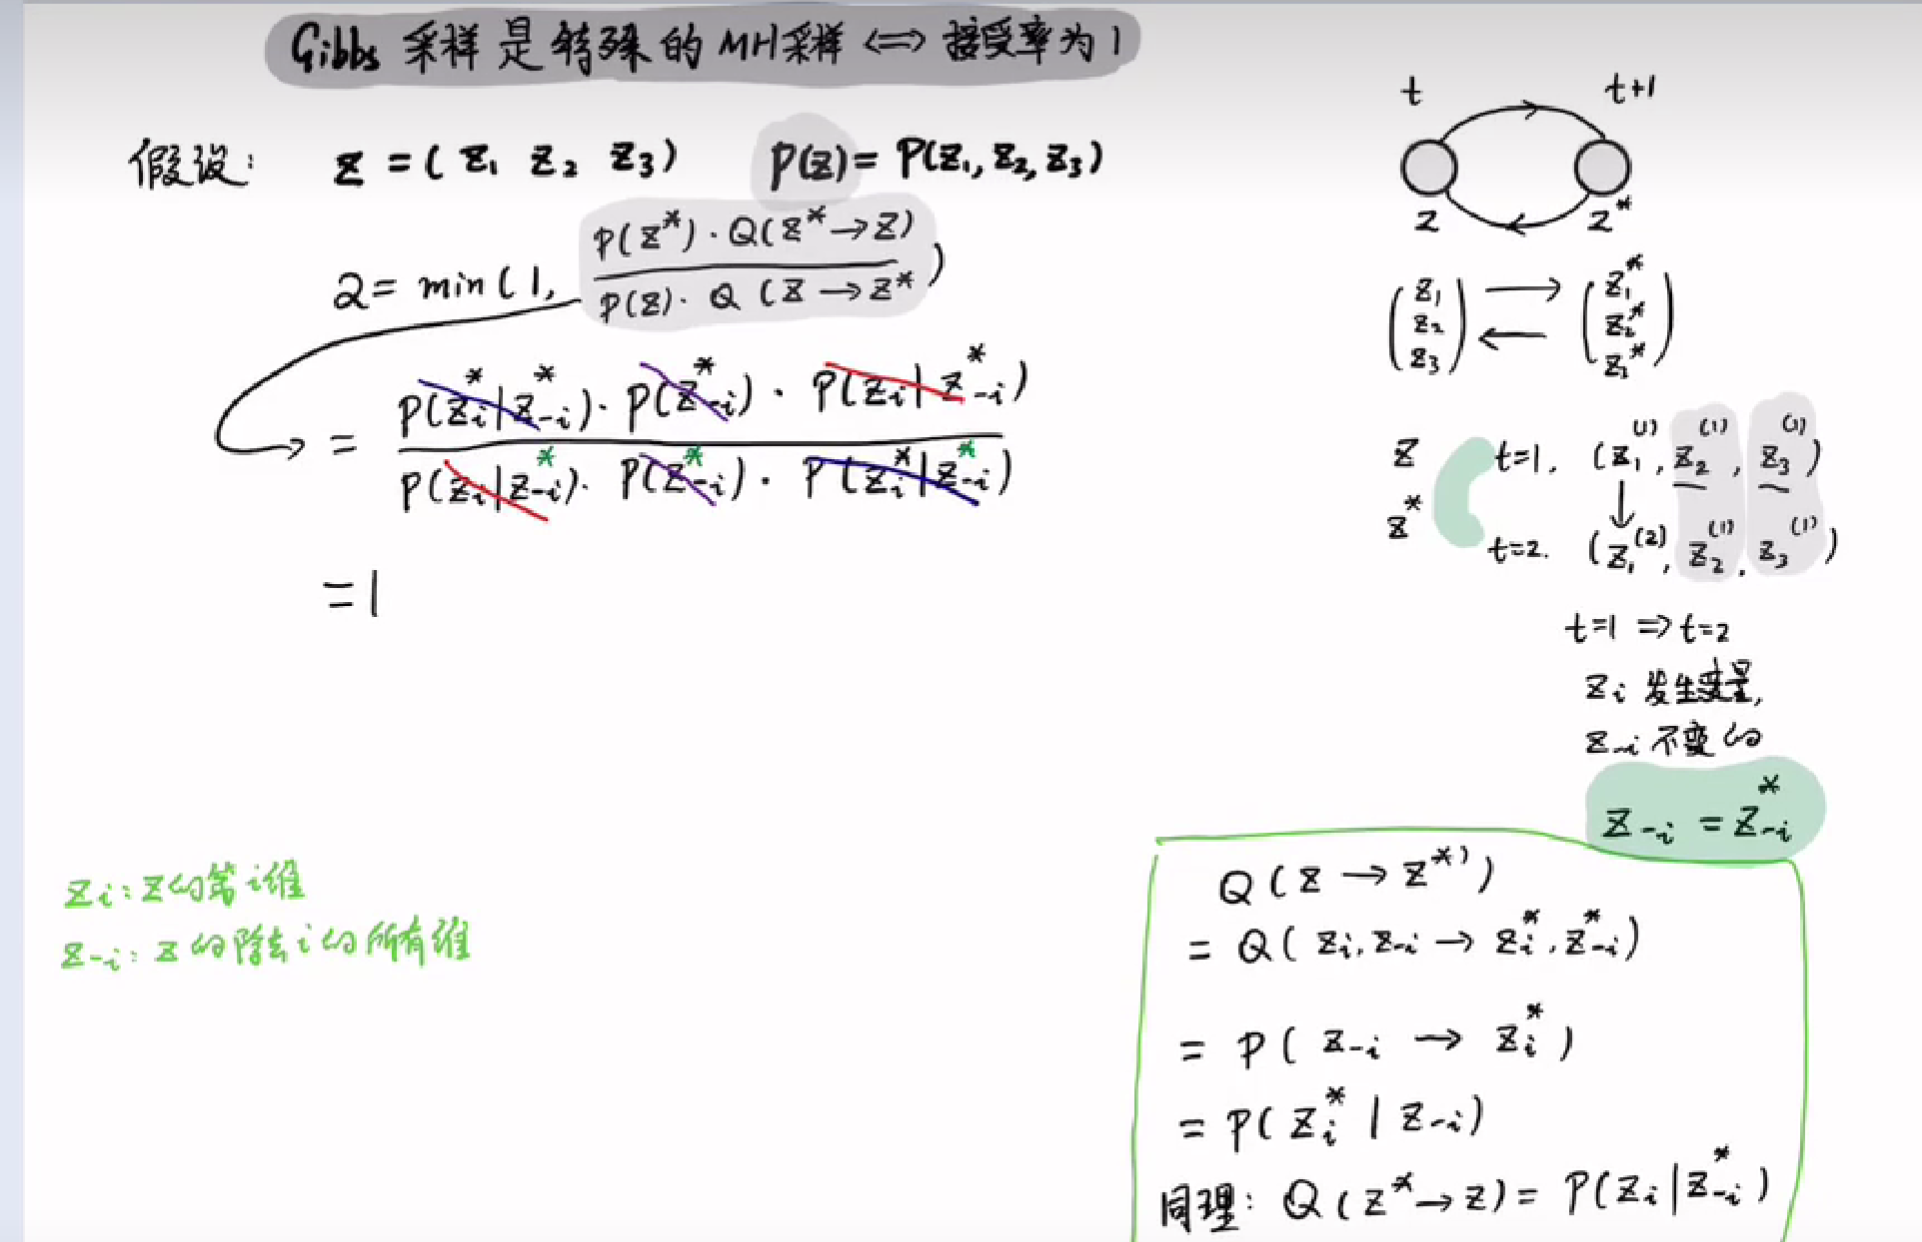 Gibbs 采样是特殊的MH采样 ⟺ 接受率为1
假设: z = ( z₁ z₂ z₃ ) p(z) = P(z₁, z₂, z₃)
α = min( 1, P(z*)·Q(z*→z) / P(z)·Q(z→z*) )
= P(zᵢ*|z₋ᵢ*)·P(z₋ᵢ*)·P(zᵢ|z₋ᵢ*) / P(zᵢ|z₋ᵢ*)·P(z₋ᵢ*)·P(zᵢ*|z₋ᵢ*)
= 1
zᵢ: z的第i维
z₋ᵢ: z的除去i的所有维
t t+1
z z*
( z₁ z₂ z₃ ) → ← ( z₁* z₂* z₃* )
z t=1. (z₁⁽¹⁾, z₂⁽¹⁾, z₃⁽¹⁾)
↓
z* t=2. (z₁⁽²⁾, z₂⁽¹⁾, z₃⁽¹⁾)
t=1 ⇒ t=2
zᵢ 发生变量,
z₋ᵢ 不变的
z₋ᵢ = z₋ᵢ*
Q ( z → z*) )
= Q ( zᵢ, z₋ᵢ → zᵢ*, z₋ᵢ* )
= P ( z₋ᵢ → zᵢ* )
= P ( zᵢ* | z₋ᵢ )
同理: Q ( z* → z ) = P ( zᵢ | z₋ᵢ* )